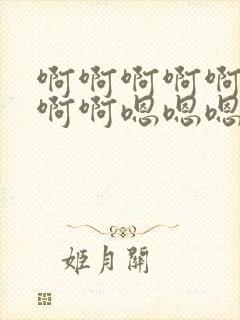 啊啊啊啊啊
啊啊嗯嗯嗯
姬月關